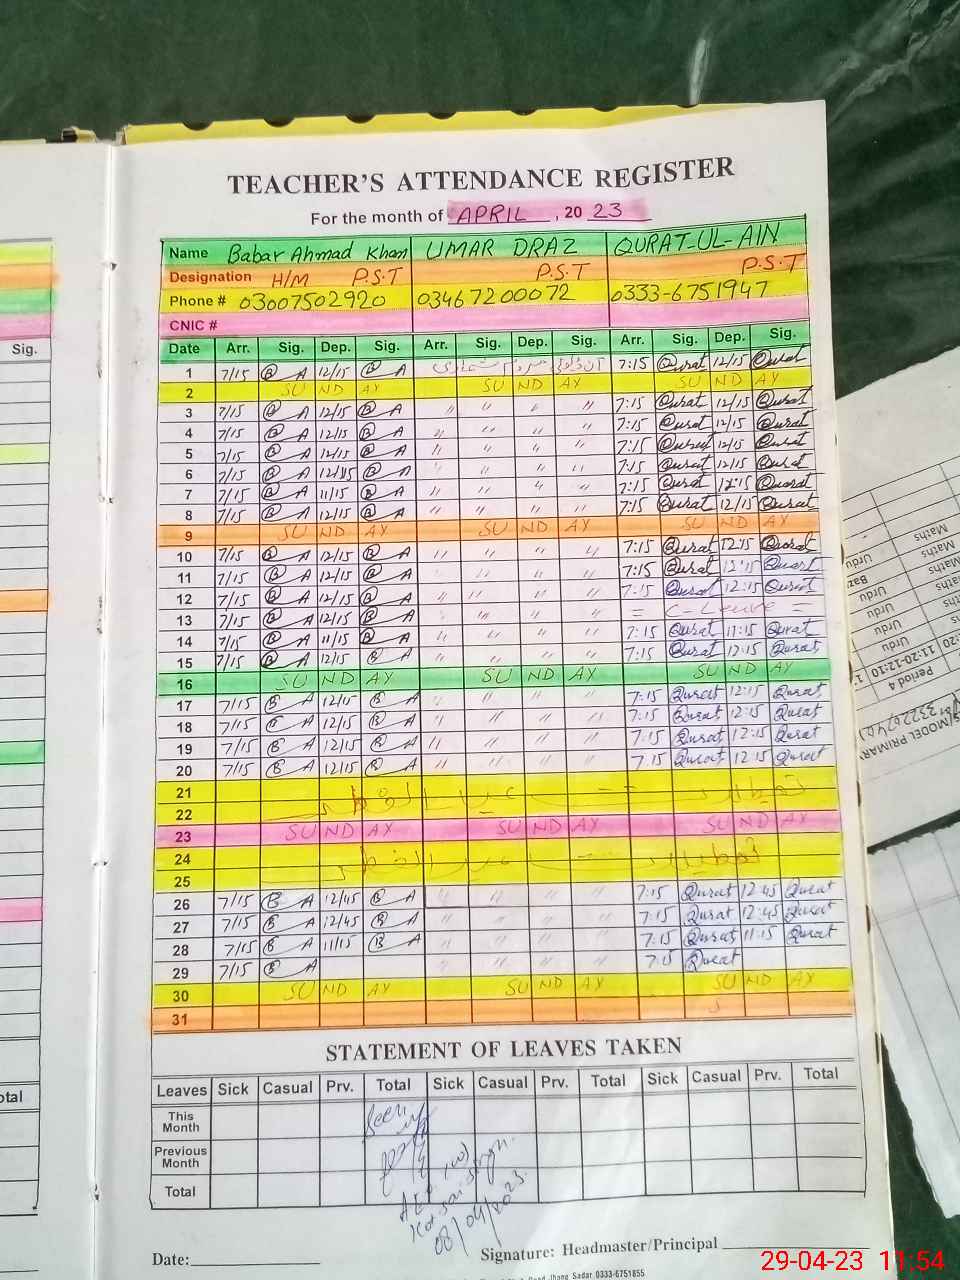 TEACHER'S ATTENDANCE REGISTER
For the month of APRIL, 20 23
Name Babar Ahmad Khan UMAR DRAZ QURAT-UL-AIN
Designation H/M P.S.T P.S.T P.S.T
Phone # 03007502920 03467200072 0333-6751947
CNIC #
Sig. Date Arr. Sig. Dep. Sig. Arr. Sig. Dep. Sig. Arr. Sig. Dep. Sig.
1 7/15 B A 12/15 B A 7:15 Qurat 12/15 Qurat
2 SU ND AY SU ND AY SU ND AY
3 7/15 B A 12/15 B A " " " " 7:15 Qurat 12/15 Qurat
4 7/15 B A 12/15 B A " " " " 7:15 Qurat 12/15 Qurat
5 7/15 B A 12/15 B A " " " " 7:15 Qurat 12/15 Qurat
6 7/15 B A 12/15 B A " " " " 7:15 Qurat 12/15 Qurat
7 7/15 B A 11/15 B A " " " " 7:15 Qurat 12:15 Qurat
8 7/15 B A 12/15 B A " " " " 7:15 Qurat 12/15 Qurat
9 SU ND AY SU ND AY SU ND AY
10 7/15 B A 12/15 B A " " " " 7:15 Qurat 12:15 Qurat
11 7/15 B A 12/15 B A " " " " 7:15 Qurat 12:15 Qurat
12 7/15 B A 12/15 B A " " " " 7:15 Qurat 12:15 Qurat
13 7/15 B A 12/15 B A " " " " = C-Leave =
14 7/15 B A 11/15 B A " " " " 7:15 Qurat 11:15 Qurat
15 7/15 B A 12/15 B A " " " " 7:15 Qurat 12:15 Qurat
16 SU ND AY SU ND AY SU ND AY
17 7/15 B A 12/15 B A " " " " 7:15 Qurat 12:15 Qurat
18 7/15 B A 12/15 B A " " " " 7:15 Qurat 12:15 Qurat
19 7/15 B A 12/15 B A " " " " 7:15 Qurat 12:15 Qurat
20 7/15 B A 12/15 B A " " " " 7:15 Qurat 12:15 Qurat
21 تعطیلات عید الفطر
22
23 SU ND AY SU ND AY SU ND AY
24 تعطیلات عید الفطر
25
26 7/15 B A 12/45 B A " " " " 7:15 Qurat 12:45 Qurat
27 7/15 B A 12/45 B A " " " " 7:15 Qurat 12:45 Qurat
28 7/15 B A 11/15 B A " " " " 7:15 Qurat 11:15 Qurat
29 7/15 B A " " " " 7:15 Qurat
30 SU ND AY SU ND AY SU ND AY
31
STATEMENT OF LEAVES TAKEN
Leaves Sick Casual Prv. Total Sick Casual Prv. Total Sick Casual Prv. Total
This Month
Previous Month
Total
Seen
08/04/2023
Date:
Signature: Headmaster/Principal
Jhang Sadar 0333-6751855
otal
Maths
Urdu
Period 4
11:20-12:10
MODEL PRIMARY
29-04-23 11:54